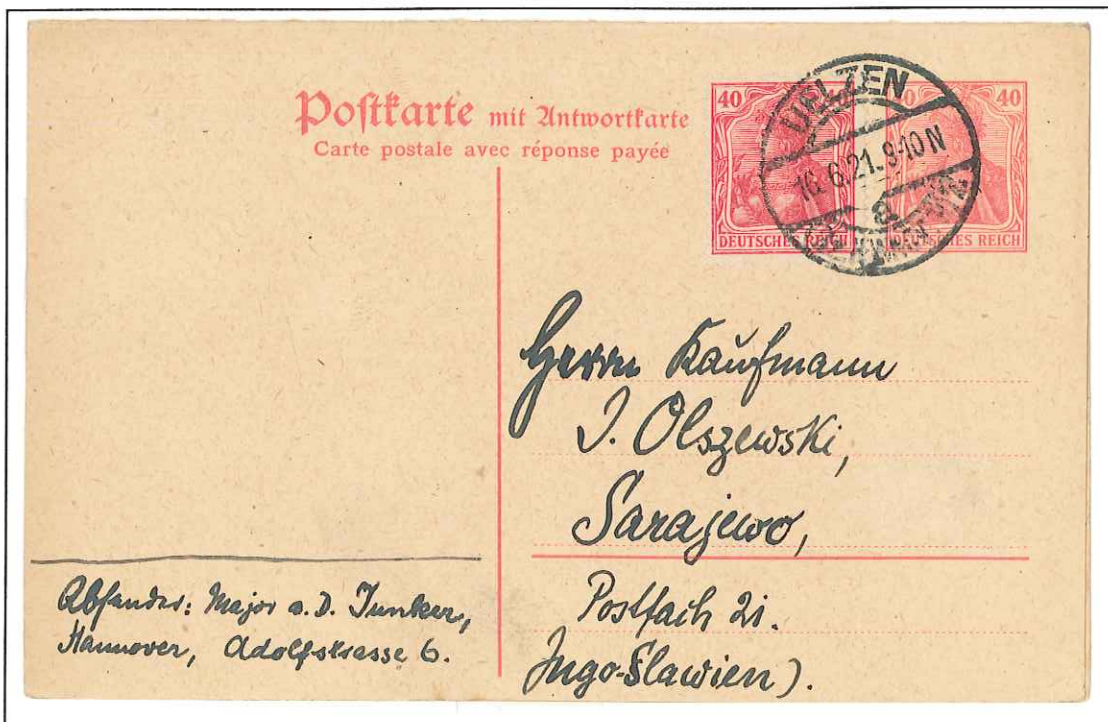 Postkarte mit Antwortkarte
Carte postale avec réponse payée
40 40
DEUTSCHES REICH DEUTSCHES REICH
UELZEN
16.6.21.9-10N
a
Herrn Kaufmann
J. Olszewski,
Sarajewo,
Postfach 21.
Jugo-Slawien).
Absender: Major a.D. Junker,
Hannover, Adolfstrasse 6.